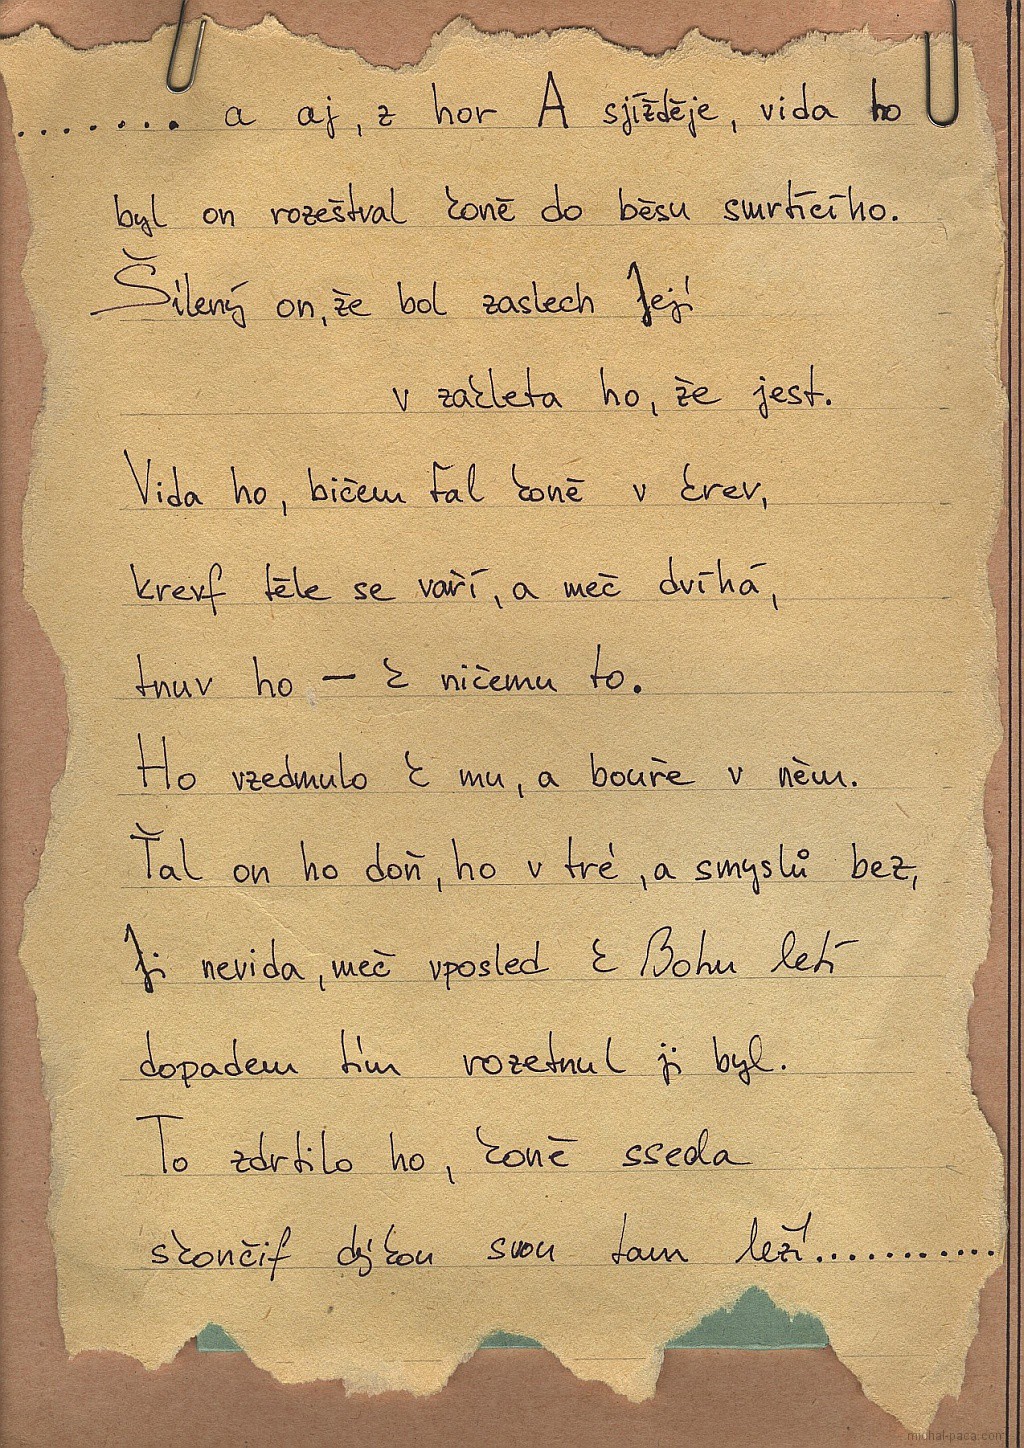 ....... a aj, z hor A sjížděje, vida ho
byl on rozeštval koně do běsu smrtícího.
Šílený on, že bol zaslech Její
v zakleta ho, že jest.
Vida ho, bičem ťal koně v krev,
krevf těle se vaří, a meč dvíhá,
tnuv ho – k ničemu to.
Ho vzedmulo k mu, a bouře v něm.
Ťal on ho doň, ho v tré, a smyslů bez,
Ji nevida, meč vposled k Bohu letí
dopadem tím rozetnul ji byl.
To zdrtilo ho, koně sseda
skončif dýkou svou tam leží...........
michal-paca.com